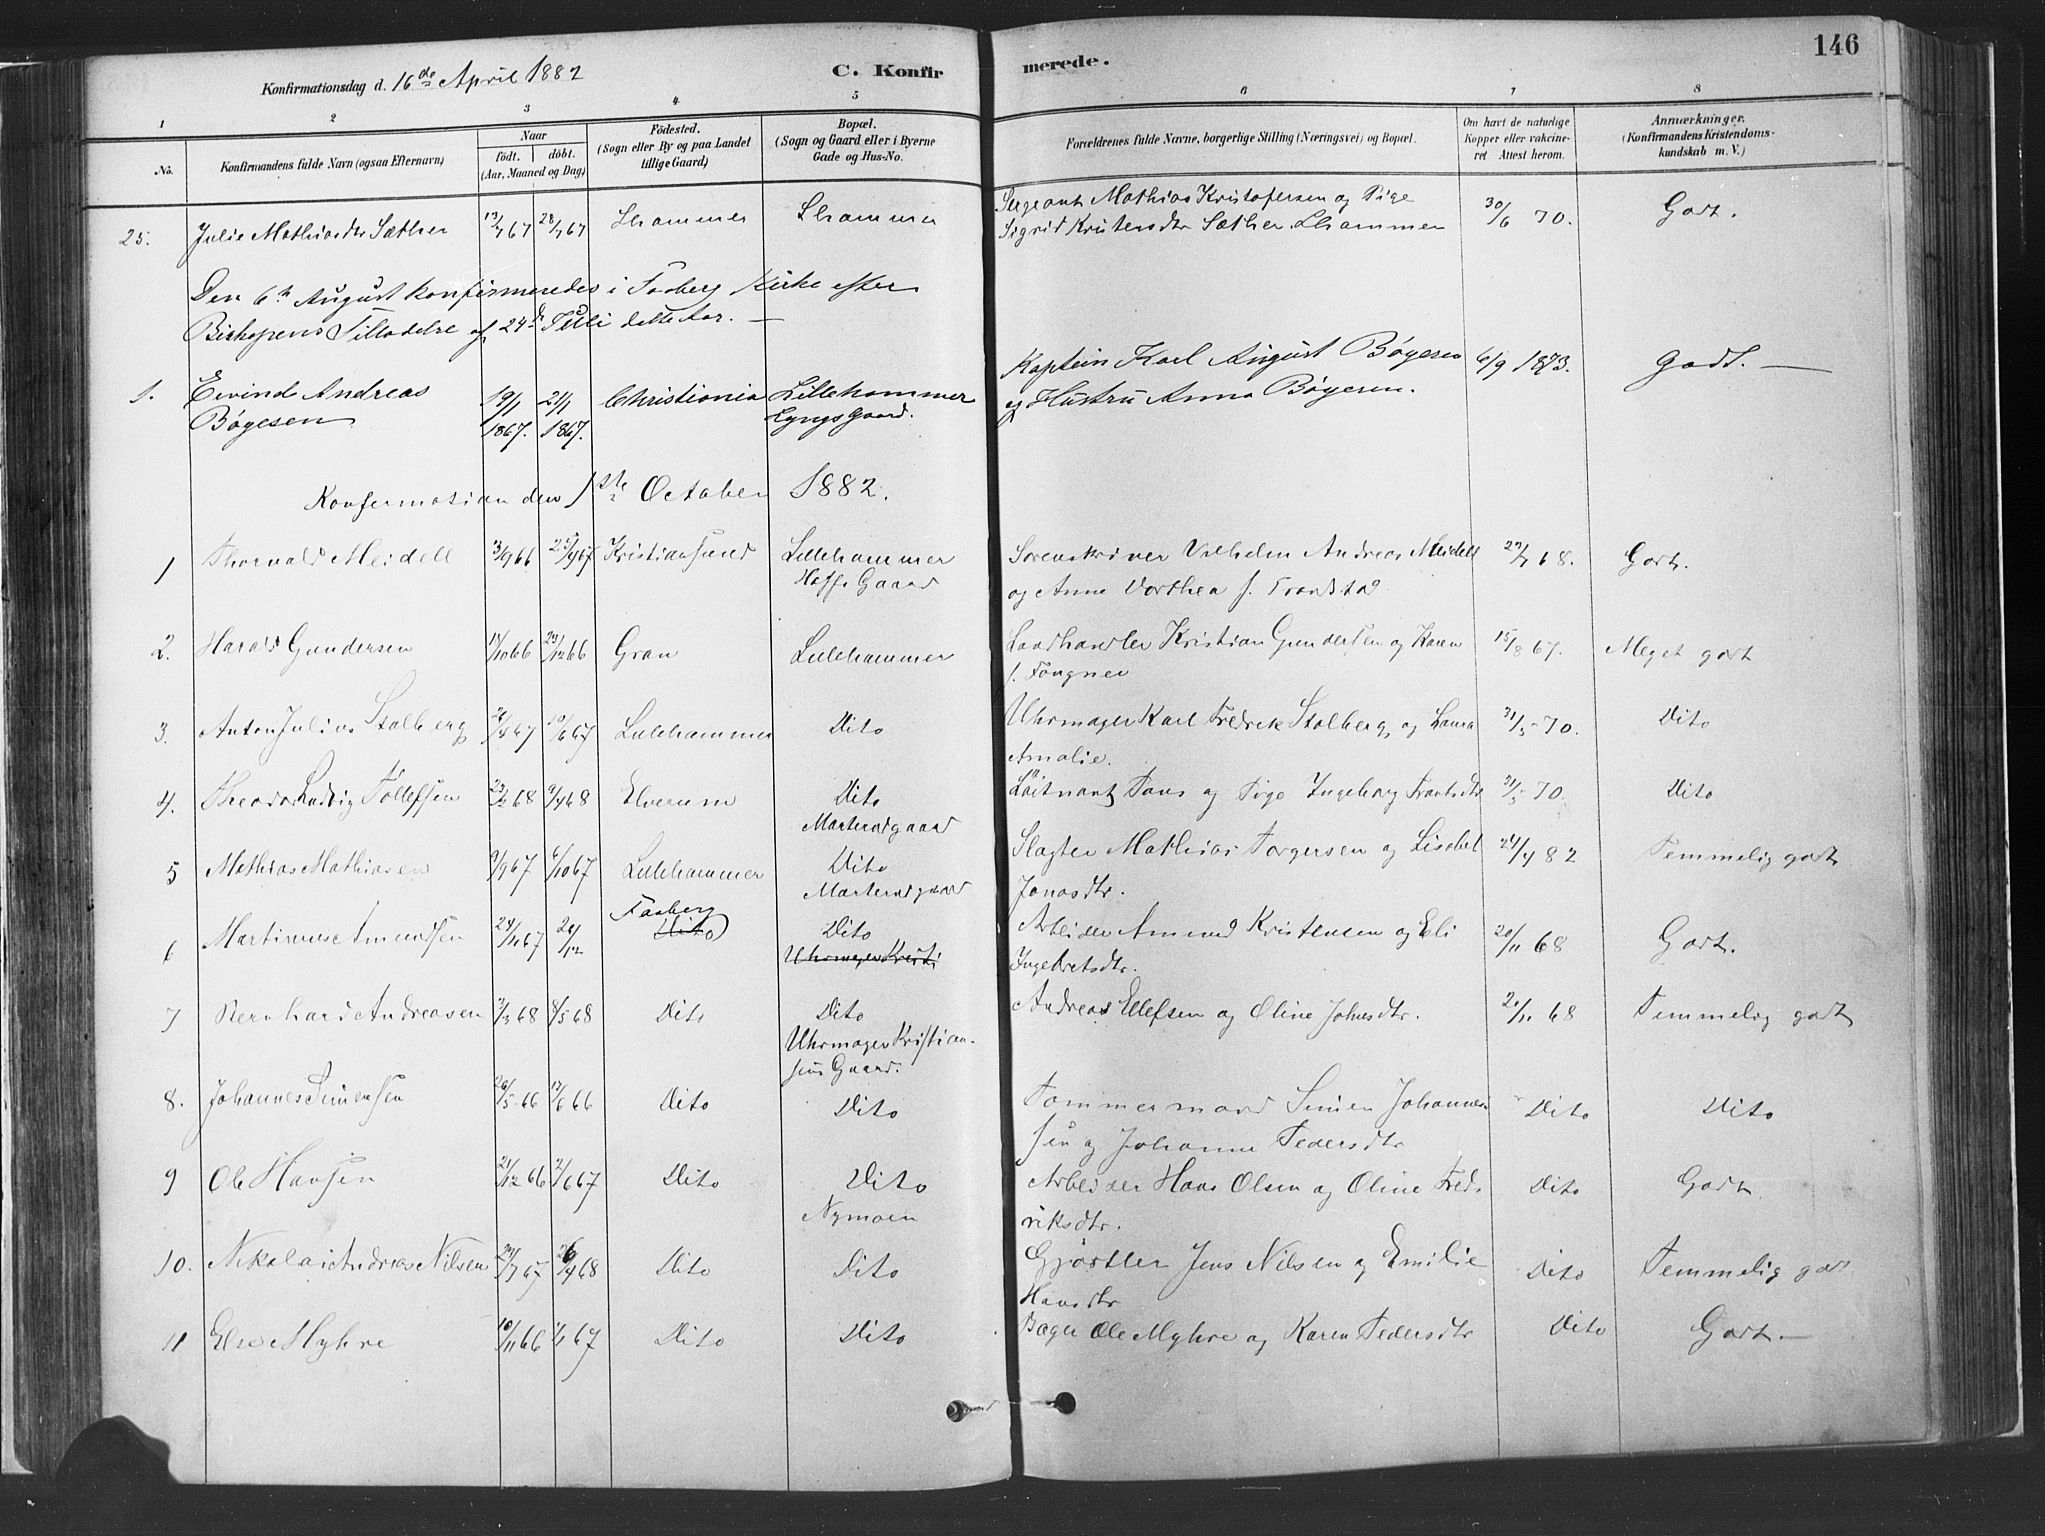 146
Konfirmationsdag d. 16de April 1882
C. Konfir merede.
1 2 3 4 5 6 7 8
No.
Konfirmandens fulde Navn (ogsaa Efternavn)
Naar
født. døbt.
(Aar, Maaned og Dag)
Fødested.
(Sogn eller By og paa Landet
tillige Gaard)
Bopæl.
(Sogn og Gaard eller i Byerne
Gade og Hus-No.
Forældrenes fulde Navne, borgerlige Stilling (Næringsvei) og Bopæl.
Om havt de naturlige
Kopper eller vakcine-
ret Attest herom.
Anmærkninger.
(Konfirmandens Kristendoms-
kundskab m. V.)
25. Julie Mathiasdtr Sæther 13/7 67 28/7 67 Lhammer Lhammer Sergeant Mathias Kristofersen og Pige 30/6 70. Godt.
Sigrid Kristensdtr Sæther Lhammer
Den 6te August konfirmeredes i Faaberg Kirke efter
Biskopens Tilladelse af 24de Juli dette Aar. —
1. Eivind Andreas 19/1 21/1 Christiania Lillehammer Kaptein Karl August Bøgesen 6/9 1873. Godt. —
Bøgesen 1867. 1867. Lyngs Gaard. og Hustru Anna Bøgesen.
Konfermation den 1ste October 1882.
1 Thorvald Meidell 13/9 66 25/9 67 Kristiansund Lillehammer Sorenskriver Vilhelm Andreas Meidell 29/7 68. Godt.
Hoffs Gaard og Anne Dorthea f. Frandstad
2. Harald Gundersen 17/10 66 23/12 66 Gran Lillehammer Landhandler Kristian Gundersen og Karen 15/8 67. Meget godt
f. Fougner
3. Anton Julius Stalberg 2/4 67 10/6 67 Lillehammer Dito Uhrmager Karl Fredrik Stalberg og Laura 31/5 70. Dito
Amalie.
4. Theodor Ludvig Tollefsen 23/2 68 9/4 68 Elverum Dito Løitnant Paus og Pige Ingeborg Frantsdtr 31/5 70. Dito
Marterudgaard
5 Mathias Mathiasen 9/9 67 6/10 67 Lillehammer Dito Slagter Mathias Torgersen og Lisebet 24/4 82 Temmelig godt
Marterudgaard Jonasdtr.
6 Martinus Amundsen 24/10 67 26/12 Faaberg Dito Dito Arbeider Amund Kristensen og Eli 20/11 68 Godt.
Uhrmager Kristi Ingebretsdtr.
7 Bernhard Andreasen 3/3 68 8/5 68 Dito Dito Andreas Ellefsen og Oline Johnsdtr. 20/11 68 Temmelig godt
Uhrmager Kristian-
sens Gaard.
8. Johannes Simensen 26/5 66 17/6 66 Dito Dito Tømmermand Simen Johannes- Dito Dito
sen og Johanne Pedersdtr
9 Ole Hansen 21/12 66 2/6 67 Dito Dito Arbeider Hans Olsen og Oline Fred- Dito Godt
Nymoen riksdtr.
10. Nikolai Andreas Nilsen 23/7 67 26/4 68 Dito Dito Gjørtler Jens Nilsen og Emilie Dito Temmelig godt
Hansdtr
11 Else Myhre 10/11 66 1/1 67 Dito Dito Bager Ole Myhre og Karen Pedersdtr Dito Godt. —